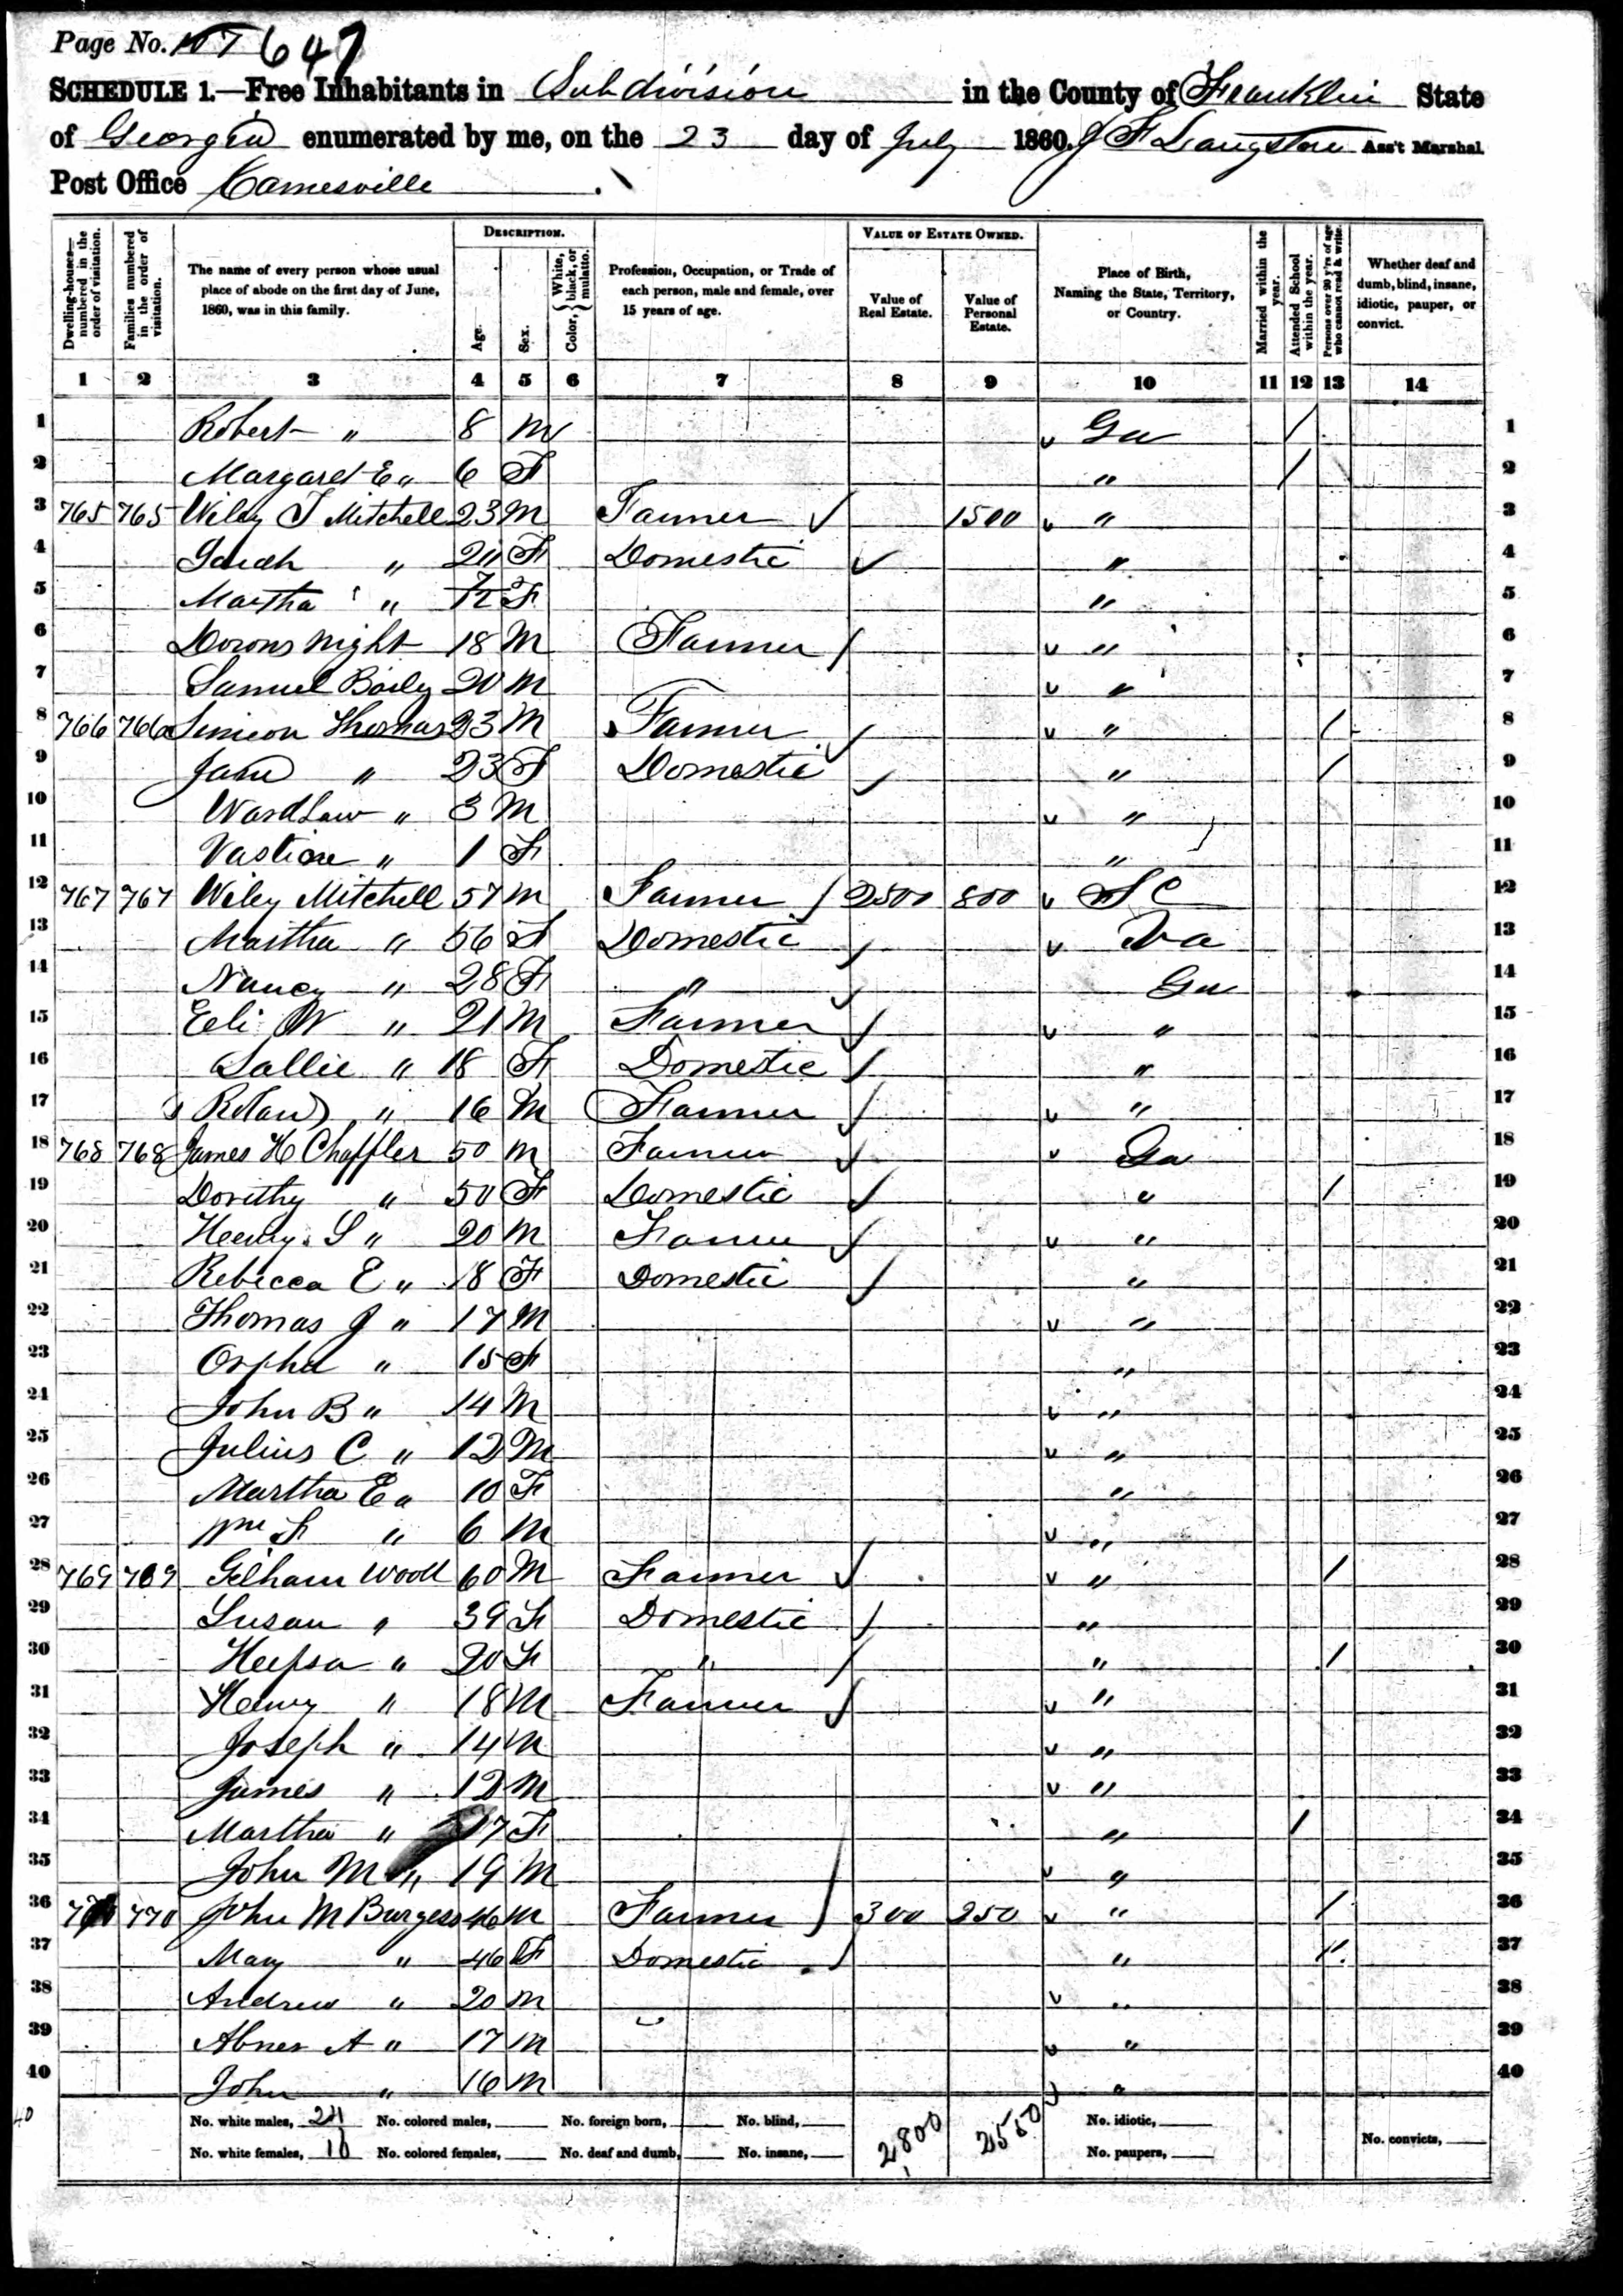 Page No. 647
SCHEDULE 1.—Free Inhabitants in Subdivision in the County of Franklin State
of Georgia enumerated by me, on the 23 day of July 1860. J F Langston Ass't Marshal
Post Office Carnesville
DESCRIPTION. VALUE OF ESTATE OWNED.
Dwelling-houses—numbered in the order of visitation. Families numbered in the order of visitation. The name of every person whose usual place of abode on the first day of June, 1860, was in this family. Age. Sex. Color, { White, black, or mulatto. Profession, Occupation, or Trade of each person, male and female, over 15 years of age. Value of Real Estate. Value of Personal Estate. Place of Birth, Naming the State, Territory, or Country. Married within the year. Attended School within the year. Persons over 20 y'rs of age who cannot read & write. Whether deaf and dumb, blind, insane, idiotic, pauper, or convict.
1 2 3 4 5 6 7 8 9 10 11 12 13 14
1 Robert " 8 M Ga / 1
2 Margaret E " 6 F " / 2
3 765 765 Wiley J Mitchell 23 M Farmer 1500 " 3
4 Sarah " F Domestic " 4
5 Martha " F " 5
6 18 M Farmer " 6
7 Samuel 20 M " 7
8 766 766 Simeon Thomas 23 M Farmer " / 8
9 Jane " 23 F Domestic " / 9
10 Wardlaw " 3 M " 10
11 " 1 F " 11
12 767 767 Wiley Mitchell 57 M Farmer 2500 800 S C 12
13 Martha " 56 F Domestic Va 13
14 Nancy " 28 F " Ga 14
15 Eli W " 21 M Farmer " 15
16 Sallie " 18 F Domestic " 16
17 " 16 M Farmer " 17
18 768 768 James H Chaffler 50 M Farmer Ga 18
19 Dorithy " 50 F Domestic " / 19
20 Henry S " 20 M Farmer " 20
21 Rebecca E " 18 F Domestic " 21
22 Thomas J " 17 M " 22
23 Orpha " 15 F " 23
24 John B " 14 M " 24
25 Julius C " 12 M " 25
26 Martha E " 10 F " 26
27 Wm F " 6 M " 27
28 769 769 Gilham Wood 60 M Farmer " / 28
29 Susan " 39 F Domestic " 29
30 Hepsa " 20 F " " / 30
31 Henry " 18 M Farmer " 31
32 Joseph " 14 M " 32
33 James " 12 M " 33
34 Martha " 7 F " / 34
35 John M " 19 M " 35
36 770 John M Burgess 46 M Farmer 300 250 " / 36
37 Mary " 46 F Domestic " / 37
38 Andrew " 20 M " 38
39 Abner A " 17 M " 39
40 John " 16 M " 40
40 No. white males, 24 No. colored males, No. foreign born, No. blind, 2800 2550 No. idiotic,
No. white females, No. colored females, No. deaf and dumb, No. insane, No. paupers, No. convicts,